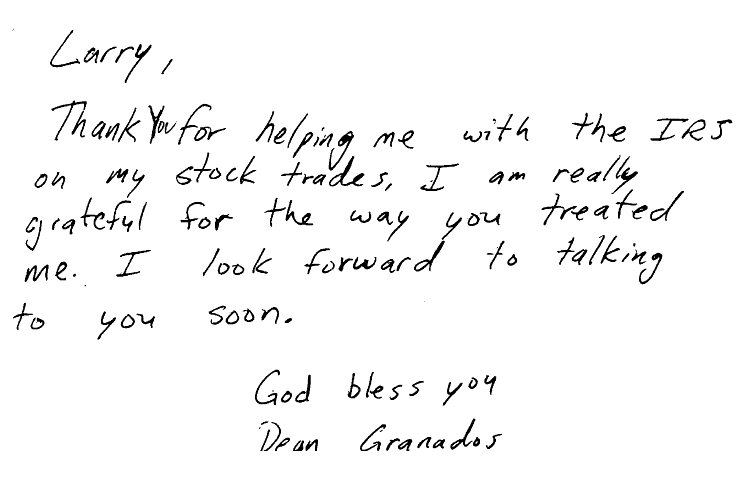 Larry,
Thank You for helping me with the IRS
on my stock trades, I am really
grateful for the way you treated
me. I look forward to talking
to you soon.
God bless you
Dean Granados